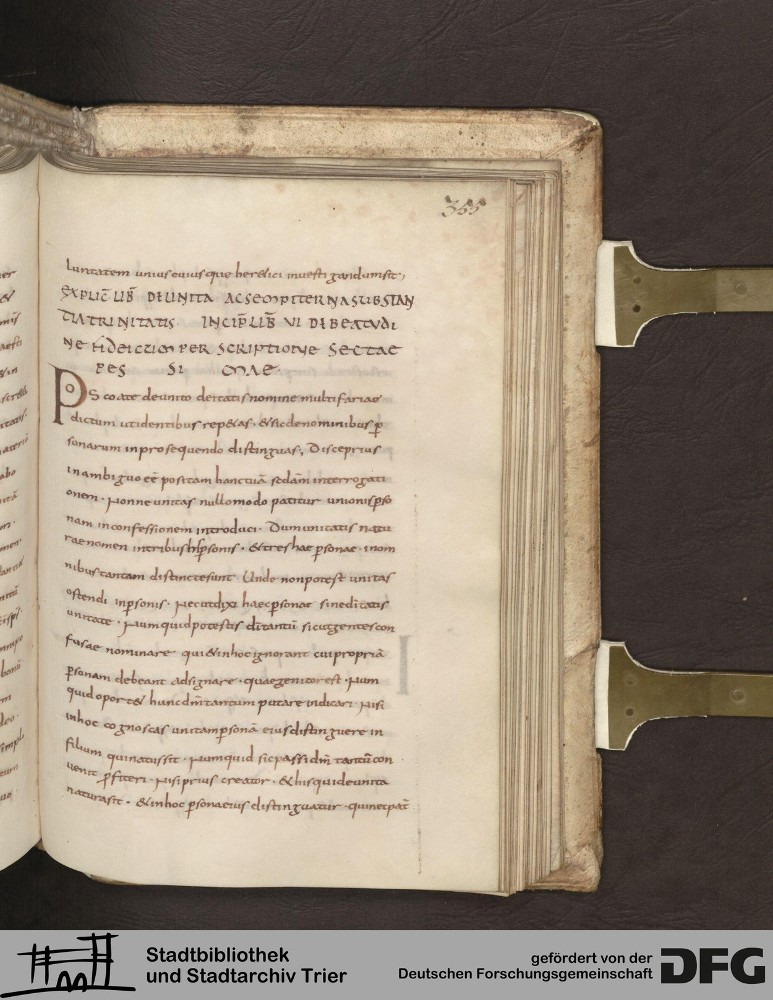 355
luntatem unius cuiusque heretici inuestigandum sit,
EXPLIC LIB DE UNITA AC SEMPITERNA SUBSTAN
TIA TRINITATIS INCIP LIB VI DE BEATVDI
NE FIDEI CUM PER SCRIPTIONE SECTAE
PES SI MAE
PS co ate de unito deitatis nomine multifariae
dictum ut identibus repetas · & sic de nominibus p
sonarum in prosequendo distinguas, Disce prius
in ambiguo ee positam hanc tuā sedām interrogati
onem · Nonne unitas nullo modo patitur unionis pso
nam in confessionem introduci · Dum unitatis natu
rae nomen in tribus sit psonis · & tres hae psonae · in om
nibus tantam distinctae sunt Unde non potest unitas
ostendi in psonis · Nec ut dixi haec psonae sine deitatis
unitate · Numquid potestis dm tantū sicut gentes con
fusae nominare qui & in hoc ignorant cui propriā
psonam debeant adsignare · quae genitor est · Num
quid oport& hunc dm tantum putare indicari · Nisi
in hoc cognoscas unitam psonā eius distinguere in
filium qui natus sit · Numquid sic passi dm tantū con
uenit pfiteri · Nisi prius creator · & his qui de unita
natura sit · & in hoc psona eius distinguatur · qui nec pat
Stadtbibliothek
und Stadtarchiv Trier
gefördert von der
Deutschen Forschungsgemeinschaft
DFG